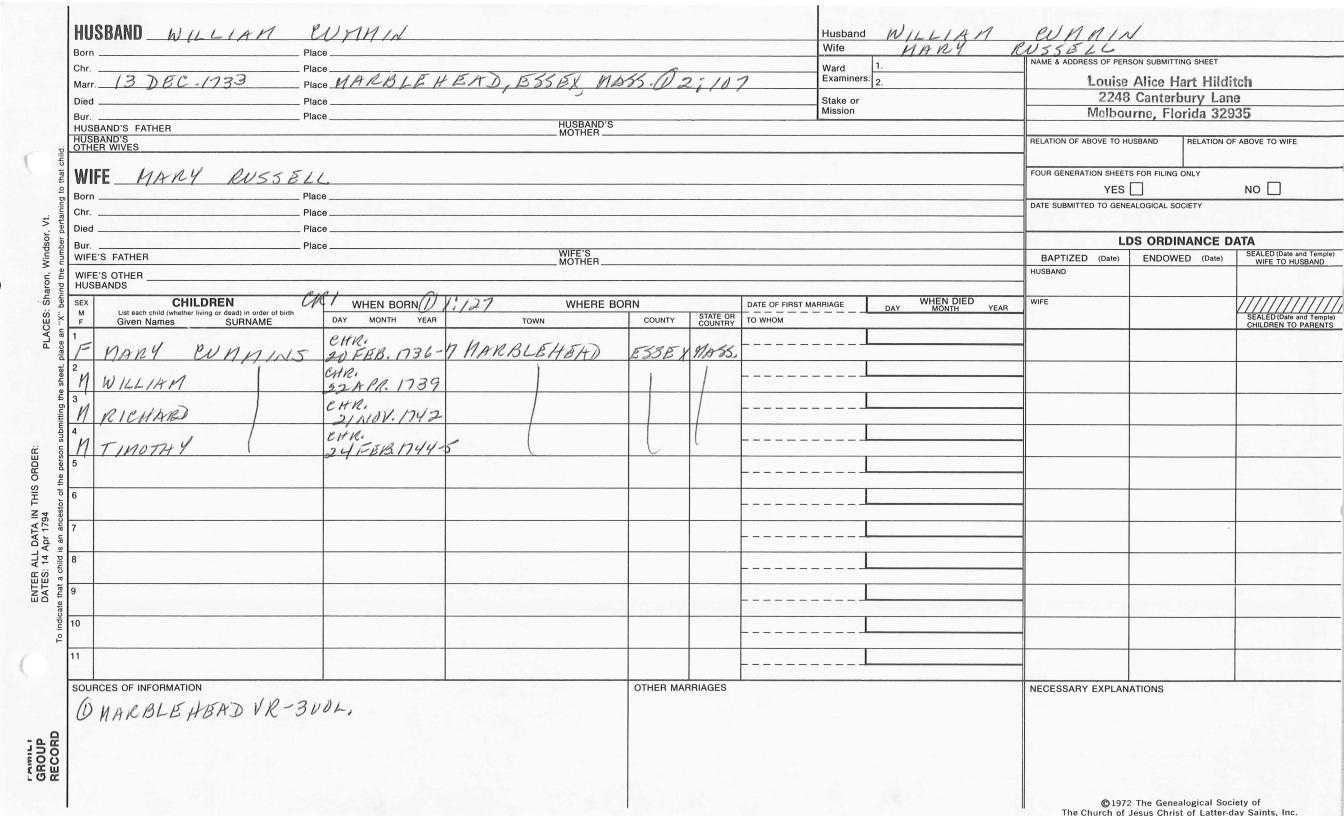 HUSBAND WILLIAM CUMMIN
Born Place
Chr. Place
Marr. 13 DEC. 1733 Place MARBLEHEAD, ESSEX, MASS. ① 2:107
Died Place
Bur. Place
HUSBAND'S FATHER HUSBAND'S MOTHER
HUSBAND'S OTHER WIVES
Husband WILLIAM CUMMIN
Wife MARY RUSSELL
Ward Examiners: 1.
2.
Stake or Mission
NAME & ADDRESS OF PERSON SUBMITTING SHEET
Louise Alice Hart Hilditch
2248 Canterbury Lane
Melbourne, Florida 32935
RELATION OF ABOVE TO HUSBAND RELATION OF ABOVE TO WIFE
FOUR GENERATION SHEETS FOR FILING ONLY
YES NO
DATE SUBMITTED TO GENEALOGICAL SOCIETY
WIFE MARY RUSSELL
Born Place
Chr. Place
Died Place
Bur. Place
WIFE'S FATHER WIFE'S MOTHER
WIFE'S OTHER HUSBANDS
LDS ORDINANCE DATA
BAPTIZED (Date) ENDOWED (Date) SEALED (Date and Temple) WIFE TO HUSBAND
HUSBAND
WIFE
SEALED (Date and Temple) CHILDREN TO PARENTS
SEX M F
CHILDREN
List each child (whether living or dead) in order of birth
Given Names SURNAME
CR1 WHEN BORN ① 1:127
DAY MONTH YEAR
WHERE BORN
TOWN COUNTY STATE OR COUNTRY
DATE OF FIRST MARRIAGE
TO WHOM
WHEN DIED
DAY MONTH YEAR
1 F MARY CUMMINS CHR. 20 FEB. 1736-7 MARBLEHEAD ESSEX MASS.
2 M WILLIAM CHR. 22 APR. 1739
3 M RICHARD CHR. 21 NOV. 1742
4 M TIMOTHY CHR. 24 FEB. 1744-5
5
6
7
8
9
10
11
SOURCES OF INFORMATION
① MARBLEHEAD VR-3VOL.
OTHER MARRIAGES
NECESSARY EXPLANATIONS
©1972 The Genealogical Society of
The Church of Jesus Christ of Latter-day Saints, Inc.
PLACES: Sharon, Windsor, Vt.
ENTER ALL DATA IN THIS ORDER:
DATES: 14 Apr 1794
To indicate that a child is an ancestor of the person submitting the sheet, place an "X" behind the number pertaining to that child.
FAMILY
GROUP
RECORD